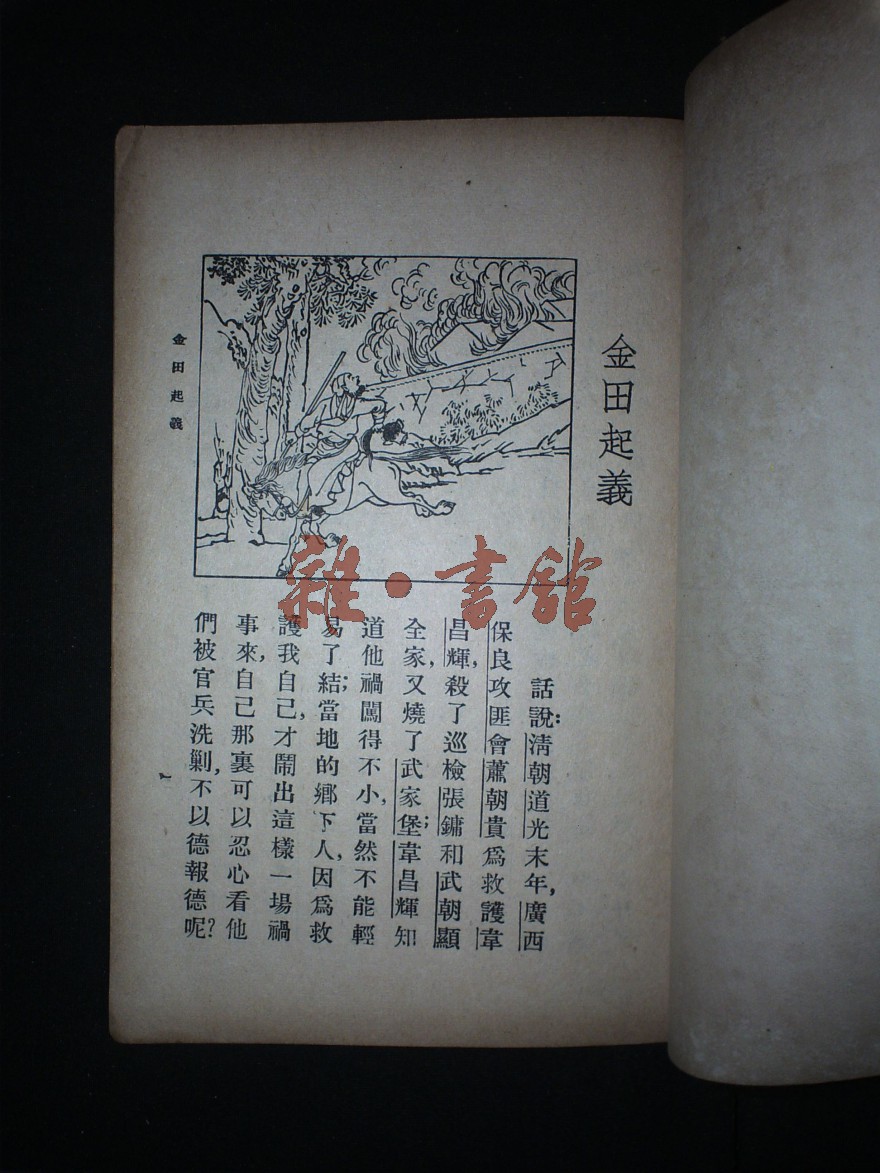 金田起義
話說：清朝道光末年，廣西
保良攻匪會蕭朝貴爲救護韋
昌輝，殺了巡檢張鏞和武朝顯
全家，又燒了武家堡；韋昌輝知
道他禍闖得不小，當然不能輕
易了結；當地的鄉下人，因爲救
護我自己，才鬧出這樣一場禍
事來，自己那裏可以忍心看他
們被官兵洗剿，不以德報德呢？
金田起義
雜·書館